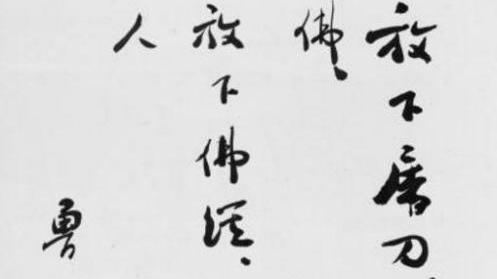 放下屠刀、
佛、
放下佛經、
人
魯